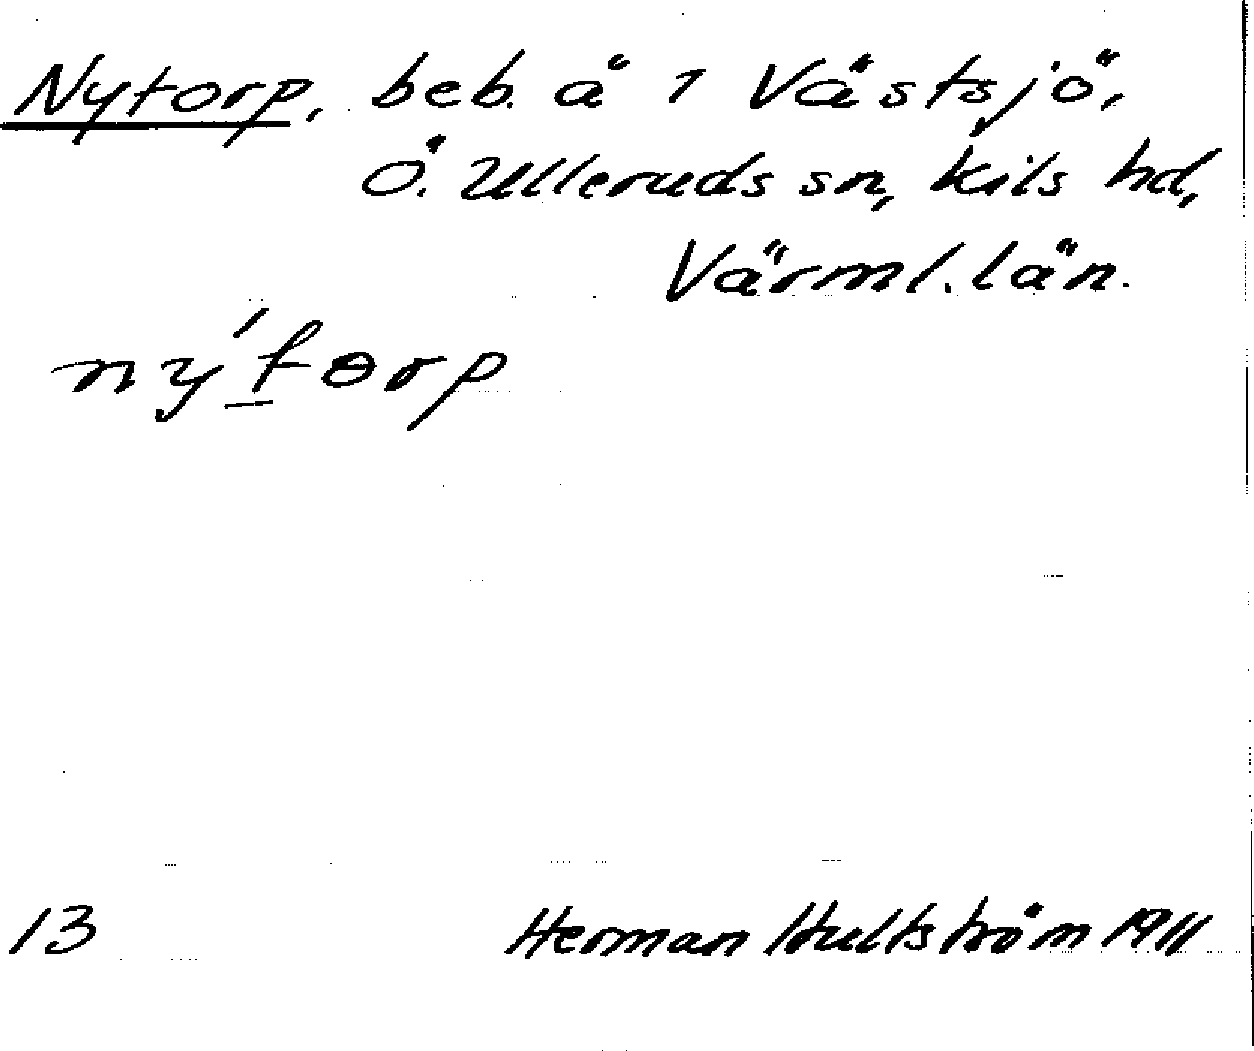 Nytorp, beb. å 1 Västsjö,
Ö. Ulleruds sn, Kils hd,
Värml. län.
ny´tɵrp
13 Herman Hultström 1911